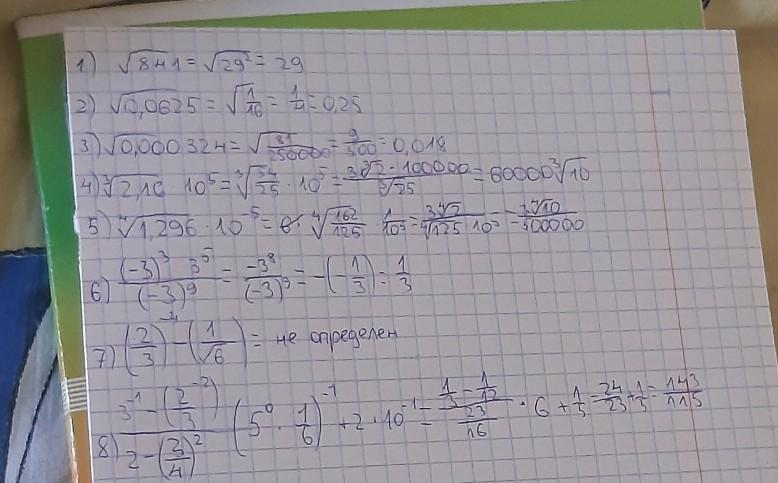 1) √841 = √29² = 29
2) √0,0625 = √1/16 = 1/4 = 0,25
3) √0,000324 = √81/250000 = 9/500 = 0,018
4) ³√2,16 · 10⁵ = ³√54/25 · 10⁵ = 3³√2 · 100000/³√25 = 60000³√10
5) ⁴√1,296 · 10⁻⁵ = ⁴√162/125 1/10⁵ = 3⁴√2/⁴√125 10⁵ = 3⁴√10/500000
6) (-3)³ 3⁵/(-3)⁹ = -3⁸/(-3)⁹ = -(-1/3) = 1/3
7) (2/3)⁻⁴ - (1/√6) = не определен
8) 3⁻¹ - (2⁻²/3)/2 - (3/4)² (5⁰ · 1/6)⁻¹ + 2 · 10⁻¹ = 1/3 - 1/12/23/16 · 6 + 1/5 = 24/23 + 1/5 = 143/115